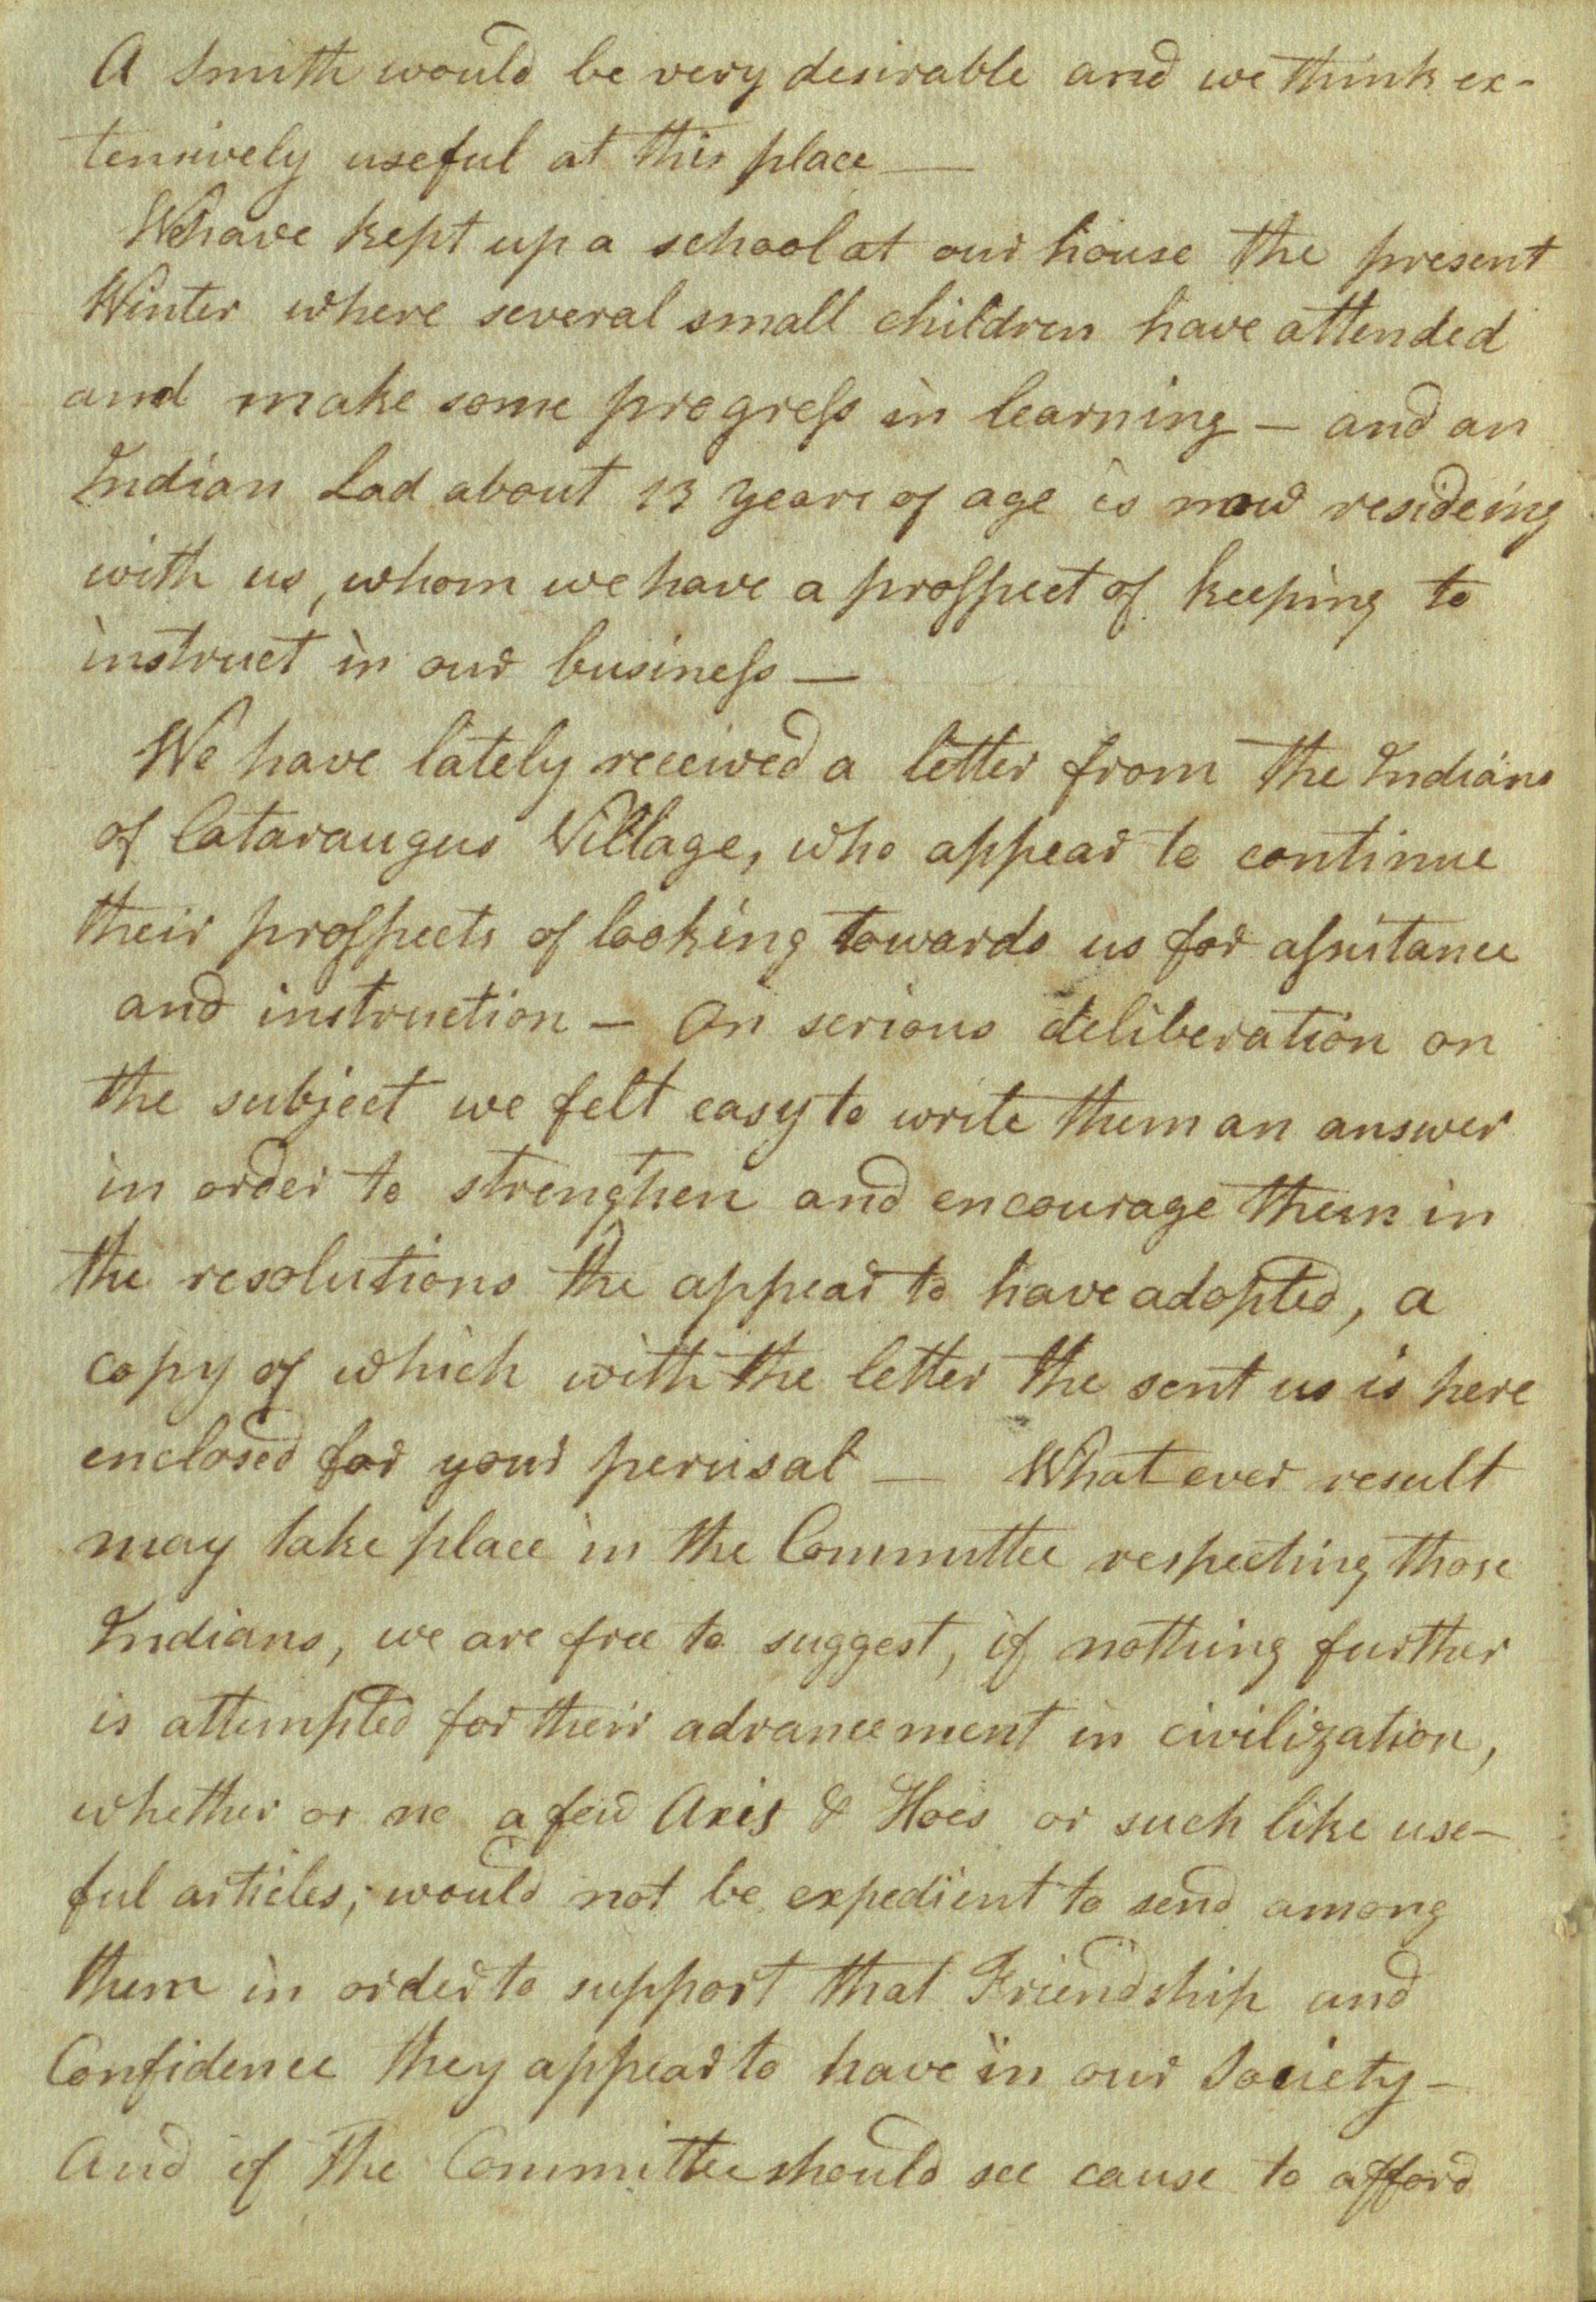 A Smith would be very desirable and we think ex-
tensively useful at this place —
We have kept up a school at our house the present
Winter where several small children have attended
and make some progreſs in learning — and an
Indian Lad about 13 years of age is now resideing
with us, whom we have a proſpect of keeping to
instruct in our buisineſs —
We have lately received a letter from the Indians
of Cataraugus Village, who appear to continue
their proſpects of looking towards us for aſsistance
and instruction — On serious deliberation on
the subject we felt easy to write them an answer
in order to strengthen and encourage them in
the resolutions the appear to have adopted, a
copy of which with the letter the sent us is here
enclosed for your perusal — What ever result
may take place in the Committee respecting those
Indians, we are free to suggest, if nothing further
is attempted for their advancement in civilization,
whether or no a few Axis & Hoes or such like use-
ful articles, would not be expedient to send among
them in order to support that Friendship and
Confidence they appear to have in our Society —
And if the Committee should see cause to afford